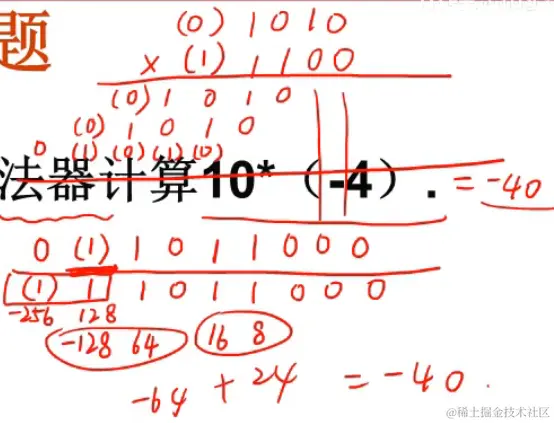 题
(0) 1 0 1 0
× (1) 1 1 0 0
(0) 1 0 1 0
(0) 1 0 1 0
0 (1) (0) (1) (0)
法器计算10*（-4）. = -40
0 (1) 1 0 1 1 0 0 0
(1) 1 1 0 1 1 0 0 0
-256 128
-128 64 16 8
-64 + 24 = -40.
@稀土掘金技术社区